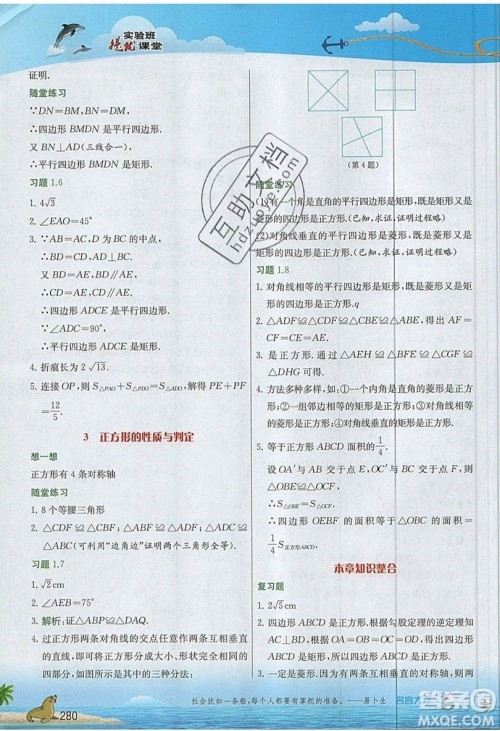 实验班
提优课堂
证明.
随堂练习
∵DN=BM,DN∥BM,
∴四边形 BMDN 是平行四边形.
又 BN⊥AD(三线合一),
∴平行四边形 BMDN 是矩形.
习题 1.6
1. 4√3
2. ∠EAO=45°
3. ∵AB=AC,D 为 BC 的中点,
∴AD⊥BC.
又 BD=AE,BD∥AE,
∴CD=AE,CD∥AE.
∴四边形 ADCE 是平行四边形.
∵∠ADC=90°,
∴平行四边形 ADCE 是矩形.
4. 折痕长为 2√13.
5. 连接 OP,则 S△PAO+S△PDO=S△ADO,解得 PE+PF
=12/5.
3 正方形的性质与判定
想一想
正方形有 4 条对称轴
随堂练习
1. 8 个等腰三角形
2. △CDF≌△CBF,△ADF≌△ABF,△CDA≌
△CBA(可利用“边角边”证明两个三角形全等).
习题 1.7
1. √2cm
2. ∠AEB=75°
3. 解析:证△ABP≌△DAQ.
4. 过正方形两条对角线的交点任意作两条互相垂直
的直线,即可得到题目中所示的三种分法;
(第 4 题)
随堂练习
(1)有一个角是直角的平行四边形是矩形,既是矩形又是
菱形的四边形是正方形.(已知,求证,证明过程略)
(2)对角线垂直的平行四边形是菱形,既是菱形又是矩
形的四边形是正方形.(已知,求证,证明过程略)
习题 1.8
1. 对角线相等的平行四边形是矩形,既是菱形又是
矩形的四边形是正方形.q
2. △ADF≌△CDF≌△CBE≌△ABE,可得 AF=
CF=CE=AE.
3. 是正方形. 通过△AEH≌△BFE≌△CGF≌
△DHG 可得.
4. 方法多种多样,如:①一个内角为直角的菱形是正方
形;②一组邻边相等的矩形是正方形;③对角线互相垂
直的矩形是正方形;④对角线相等的菱形是正方形.
5. 等于正方形 ABCD 面积的1/4.
设 OA′与 AB 交于点 E,OC′与 BC 交于点 F,
∵S△OBE=S△OCF,
∴S四边形OEBF=S△OBC.
∴四边形 OEBF 的面积等于△OBC 的面积等于
1/4 S正方形ABCD.
本章知识整合
复习题
1. 2√5 cm
2. 四边形 ABCD 是正方形.根据勾股定理的逆定理可
知 AC⊥BD,∴四边形 ABCD 是菱形.
又 AC=BD,∴四边形 ABCD 是正方形.
280
社会犹如一条船,每个人都要有掌舵的准备。——易卜生
互助文档
hdzuoye.com
答案圈
MXQE.COM